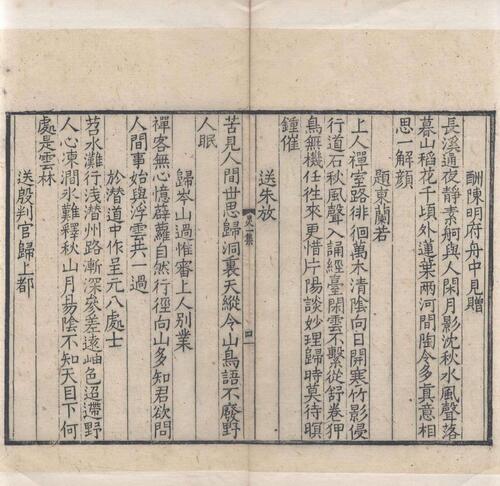 酬陳明府舟中見贈
長溪通夜静素舸與人閑月影沈秋水風聲落
暮山稻花千頃外蓮葉兩河間陶令多真意相
思一解顔
題東蘭若
上人禪室路徘徊萬木清陰向日開寒竹影侵
行道石秋風聲入誦經臺閑雲不繫從舒卷狎
鳥無機任往來更惜片陽談妙理歸時莫待暝
鍾催
送朱放
苦見人間世思歸洞裏天縱令山鳥語不廢野
人眠
歸岑山過惟審上人别業
禪客無心憶薜蘿自然行徑向山多知君欲問
人間事始與浮雲共一過
於潛道中作呈元八處士
苕水灘行淺潛州路漸深參差遠岫色迢遞野
人心凍澗氷難釋秋山月易陰不知天目下何
處是雲林
送殷判官歸上都